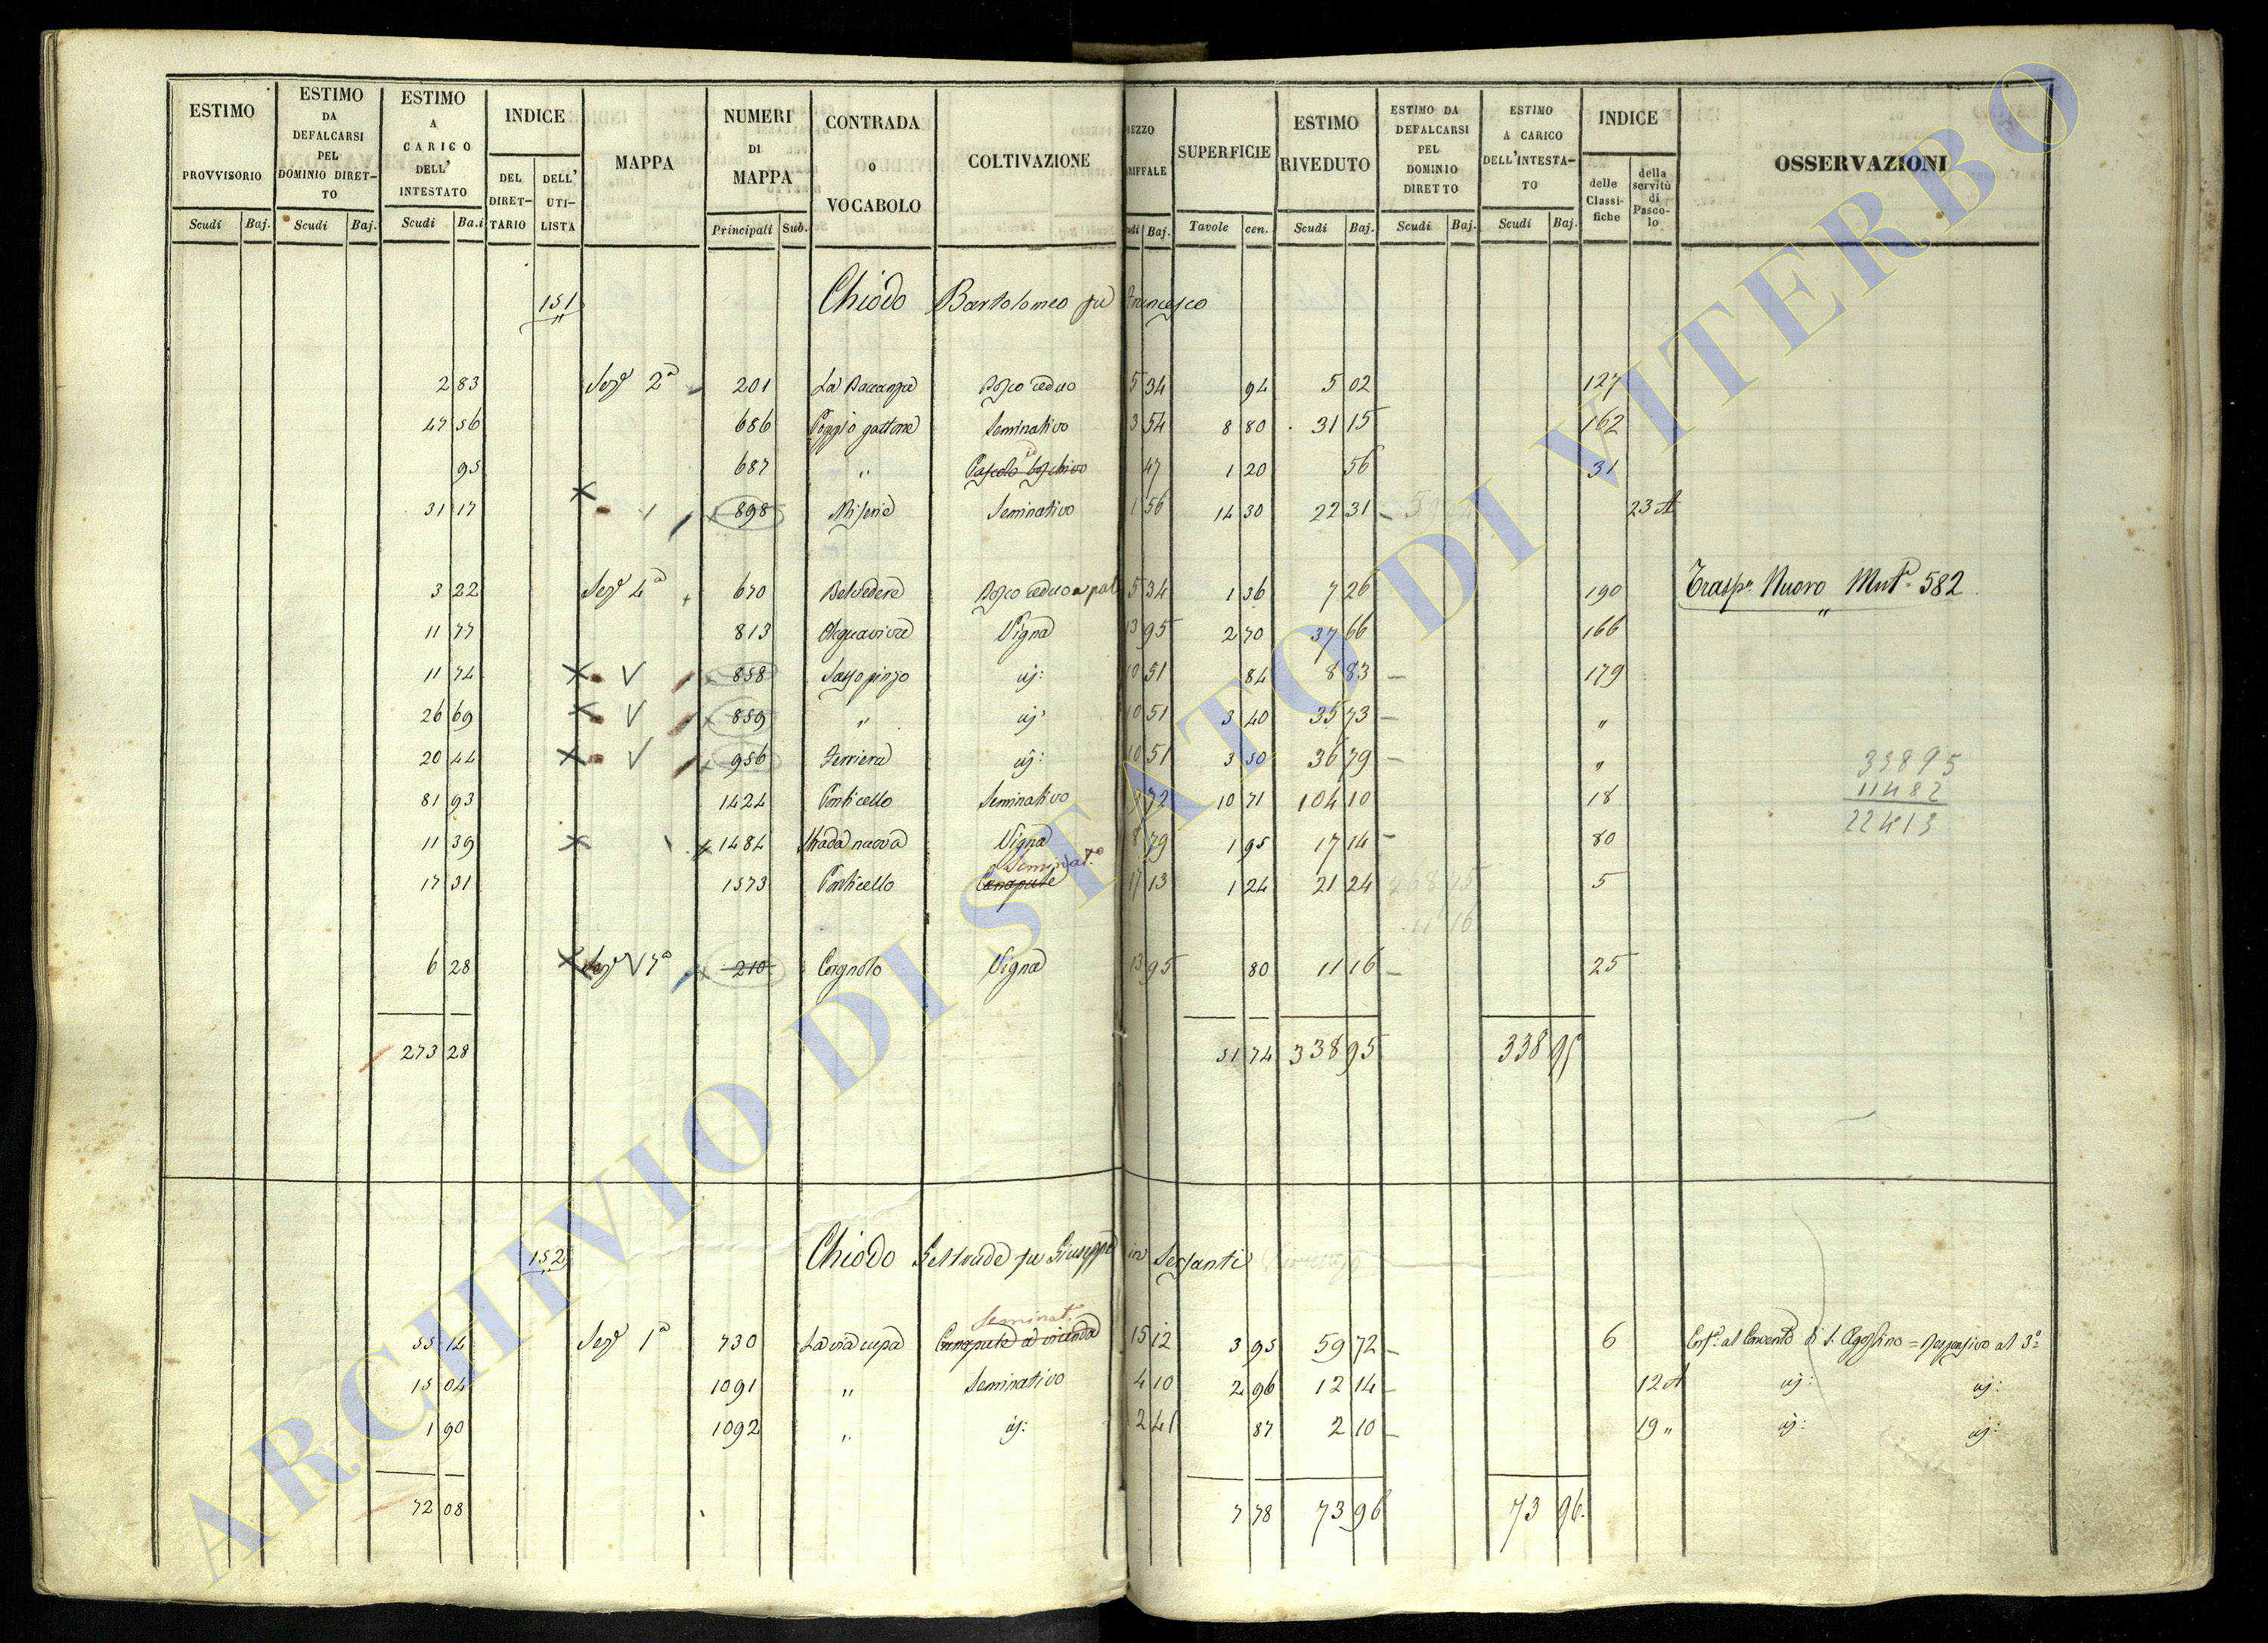 ESTIMO PROVVISORIO Scudi Baj.
ESTIMO DA DEFALCARSI PEL DOMINIO DIRET-TO Scudi Baj.
ESTIMO A CARICO DELL' INTESTATO Scudi Ba.i
INDICE DEL DIRET-TARIO DELL' UTI-LISTA
MAPPA
NUMERI DI MAPPA Principali Sub.
CONTRADA o VOCABOLO
COLTIVAZIONE
EZZO RIFFALE udi Baj.
SUPERFICIE Tavole cen.
ESTIMO RIVEDUTO Scudi Baj.
ESTIMO DA DEFALCARSI PEL DOMINIO DIRETTO Scudi Baj.
ESTIMO A CARICO DELL'INTESTA-TO Scudi Baj.
INDICE delle Classi-fiche della servitù di Pasco-lo
OSSERVAZIONI
151 Chiodo Bartolomeo fu Francesco
2 83 Sez.e 2a 201 Bosco ceduo 5 34 94 5 02 127
47 56 686 Poggio gattone Seminativo 3 54 8 80 31 15 162
95 687 " Pascolo boschivo 47 1 20 56 31
31 17 898 Seminativo 1 56 14 30 22 31 23 A
3 22 Sez.e 4a 670 Belvedere Bosco ceduo a pal 5 34 1 36 7 26 190 Trasp.o Nuovo Mut.a 582
11 77 813 Acquaviva Vigna 13 95 2 70 37 66 166
11 74 V 858 Sassopinzo id: 10 51 84 8 83 179
26 69 V 859 " id: 10 51 3 40 35 73 "
20 44 V 956 Ferriera id: 10 51 3 50 36 79 "
81 93 1424 Ponticello Seminativo 9 72 10 71 104 10 18
11 39 1484 Strada nuova Vigna 8 79 1 95 17 14 80
Seminat.o
17 31 1573 Ponticello Canapule 17 13 1 24 21 24 268 75 5
11 16
33895
11482
22413
6 28 Sez.e V 7a 210 Corgnolo Vigna 13 95 80 11 16 25
273 28 51 74 338 95 338 95
152 Chiodo Geltrude fu Giuseppe in Serganti
Seminat.
55 14 Sez.e 1a 730 La via cupa Canapule a vicenda 15 12 3 95 59 72 6 Enf.a al Convento di S. Agostino = Responsivo al 3.o
15 04 1091 " Seminativo 4 10 2 96 12 14 12 A id: id:
1 90 1092 " id: 2 41 87 2 10 19 " id: id:
72 08 7 78 73 96 73 96
ARCHIVIO DI STATO DI VITERBO